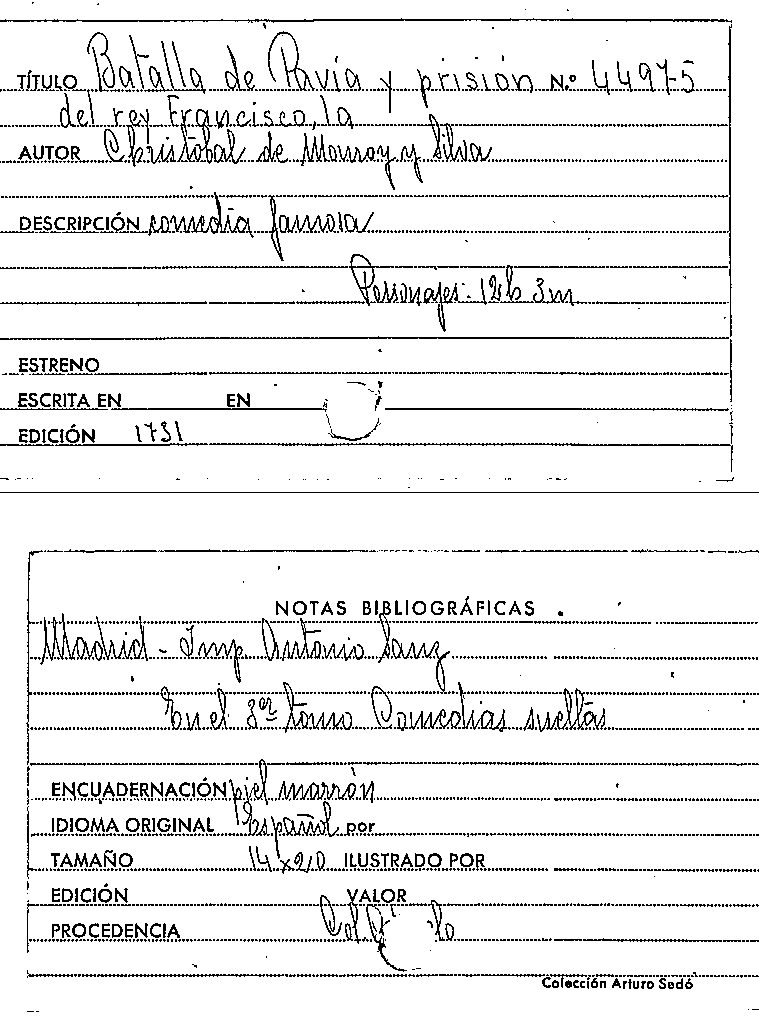 TÍTULO Batalla de Pavía y prisión N.º 44975
del rey Francisco, la
AUTOR Christobal de Monroy y Silva
DESCRIPCIÓN comedia famosa
Personajes: 12h 3m
ESTRENO
ESCRITA EN EN
EDICIÓN 1731
NOTAS BIBLIOGRÁFICAS
Madrid - Imp Antonio Sanz
En el 3er tomo Comedias sueltas
ENCUADERNACIÓN piel marrón
IDIOMA ORIGINAL Español por
TAMAÑO 14x20 ILUSTRADO POR
EDICIÓN VALOR
PROCEDENCIA Col.
Colección Arturo Sedó